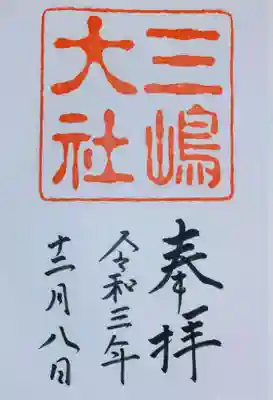 三嶋
大社
奉拝
令和三年
十二月八日